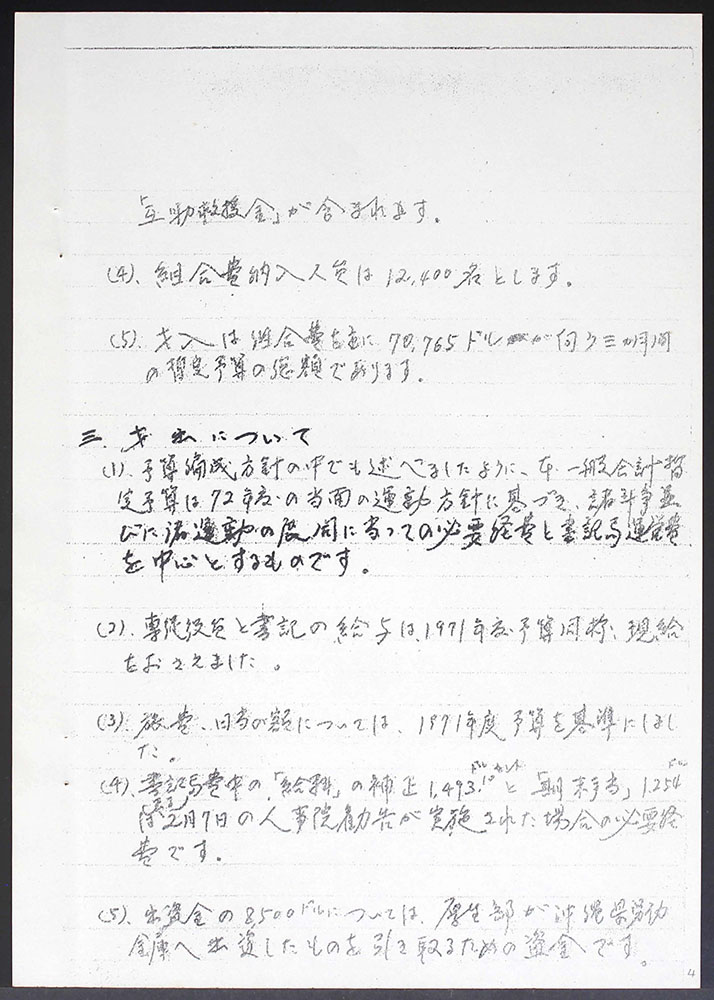 「互助救援金」が含まれます。
(4). 組合費納入人員は12,400名とします。
(5). 才入は組合費を主に70,765ドルが向う三カ月間
の暫定予算の総額であります。
三. 才出について
(1). 予算編成方針の中でも述べましたように、本一般会計暫
定予算は72年度の当面の運動方針に基づき、諸斗争並
びに諸運動の展開に当っての必要経費と書記局運営費
を中心とするものです。
(2). 専従役員と書記の給与は、1971年度予算同様、現給
をおさえました。
(3). 旅費、日当の額については、1971年度予算を基準にしまし
た。
(4). 書記局費中の「給料」の補正1,493ドル10セントと「期末手当」1,254ドル
は2月7日の人事院勧告が実施された場合の必要経
費です。
(5). 出資金の8,500ドルについては、厚生部が沖縄県労働
金庫へ出資したものを引き取るための資金です。
4